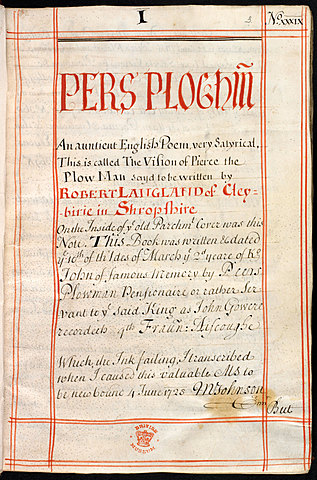 I
3
No. XXIX
PERS PLOGhM̄
An auntient English Poem, very Satyrical.
This is called The Vision of Pierce the
Plow Man sayd to be written by
ROBERT LANGLAND of Cley-
birie in Shropshire
On the Inside of yͤ old Parchmt Cover was this
Note. This Book was written & dated
yͤ 10th of the Ides of March yͤ 2d yeare of Kg
John of famous Memory by Peens
Plowman Pensionaire or rather Ser
vant to yͤ said King as John Gowere
recordeth qth Fraun: Aiscoughe
Which, the Ink fading, I transcribed
when I caused this valuable Ms to
be new bound 4 June 1725 MJohnson
But
BRITISH
MUSEUM